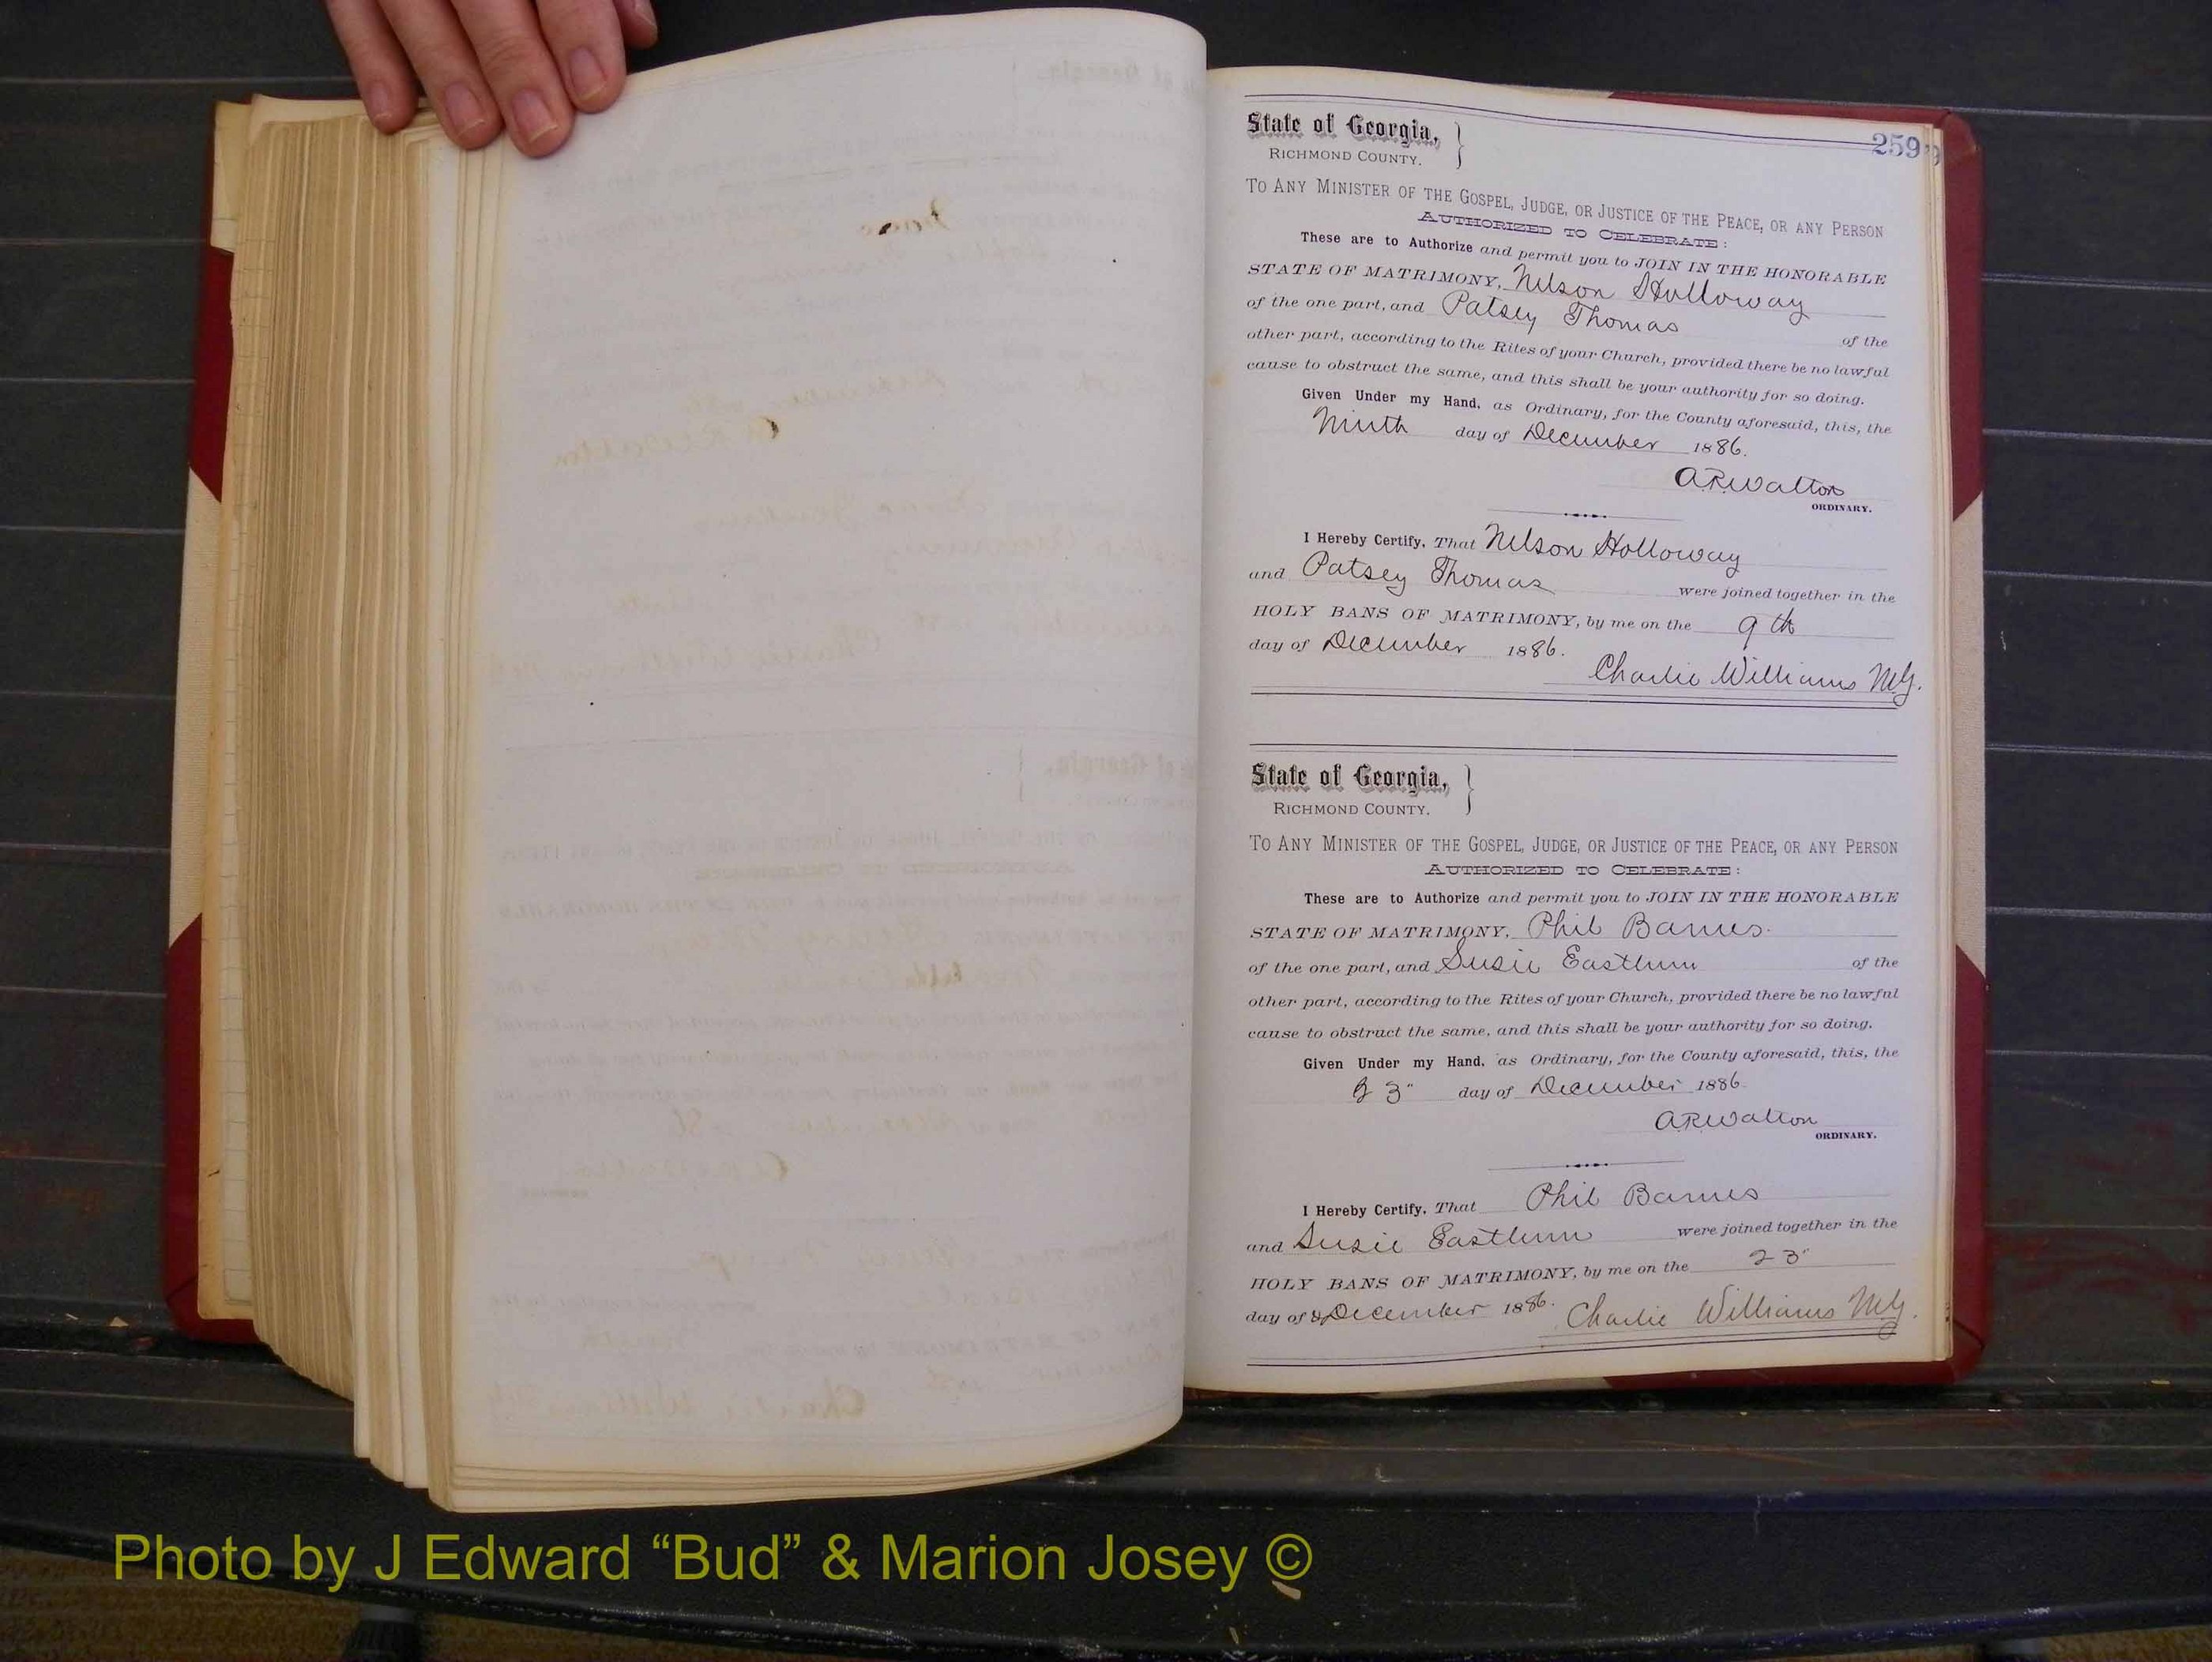 259
State of Georgia,
RICHMOND COUNTY.
TO ANY MINISTER OF THE GOSPEL, JUDGE, OR JUSTICE OF THE PEACE, OR ANY PERSON
AUTHORIZED TO CELEBRATE:
These are to Authorize and permit you to JOIN IN THE HONORABLE
STATE OF MATRIMONY, Nelson Holloway
of the one part, and Patsey Thomas of the
other part, according to the Rites of your Church, provided there be no lawful
cause to obstruct the same, and this shall be your authority for so doing.
Given Under my Hand, as Ordinary, for the County aforesaid, this, the
Ninth day of December 1886.
A.R. Walton
ORDINARY.
I Hereby Certify, That Nelson Holloway
and Patsey Thomas were joined together in the
HOLY BANS OF MATRIMONY, by me on the 9th
day of December 1886.
Charlie Williams M.G.
State of Georgia,
RICHMOND COUNTY.
TO ANY MINISTER OF THE GOSPEL, JUDGE, OR JUSTICE OF THE PEACE, OR ANY PERSON
AUTHORIZED TO CELEBRATE:
These are to Authorize and permit you to JOIN IN THE HONORABLE
STATE OF MATRIMONY, Phil Barnes.
of the one part, and Susie of the
other part, according to the Rites of your Church, provided there be no lawful
cause to obstruct the same, and this shall be your authority for so doing.
Given Under my Hand, as Ordinary, for the County aforesaid, this, the
23" day of December 1886.
A R Walton
ORDINARY.
I Hereby Certify, That Phil Barnes
and Susie were joined together in the
HOLY BANS OF MATRIMONY, by me on the 23"
day of December 1886. Charlie Williams M.G.
Photo by J Edward “Bud” & Marion Josey ©